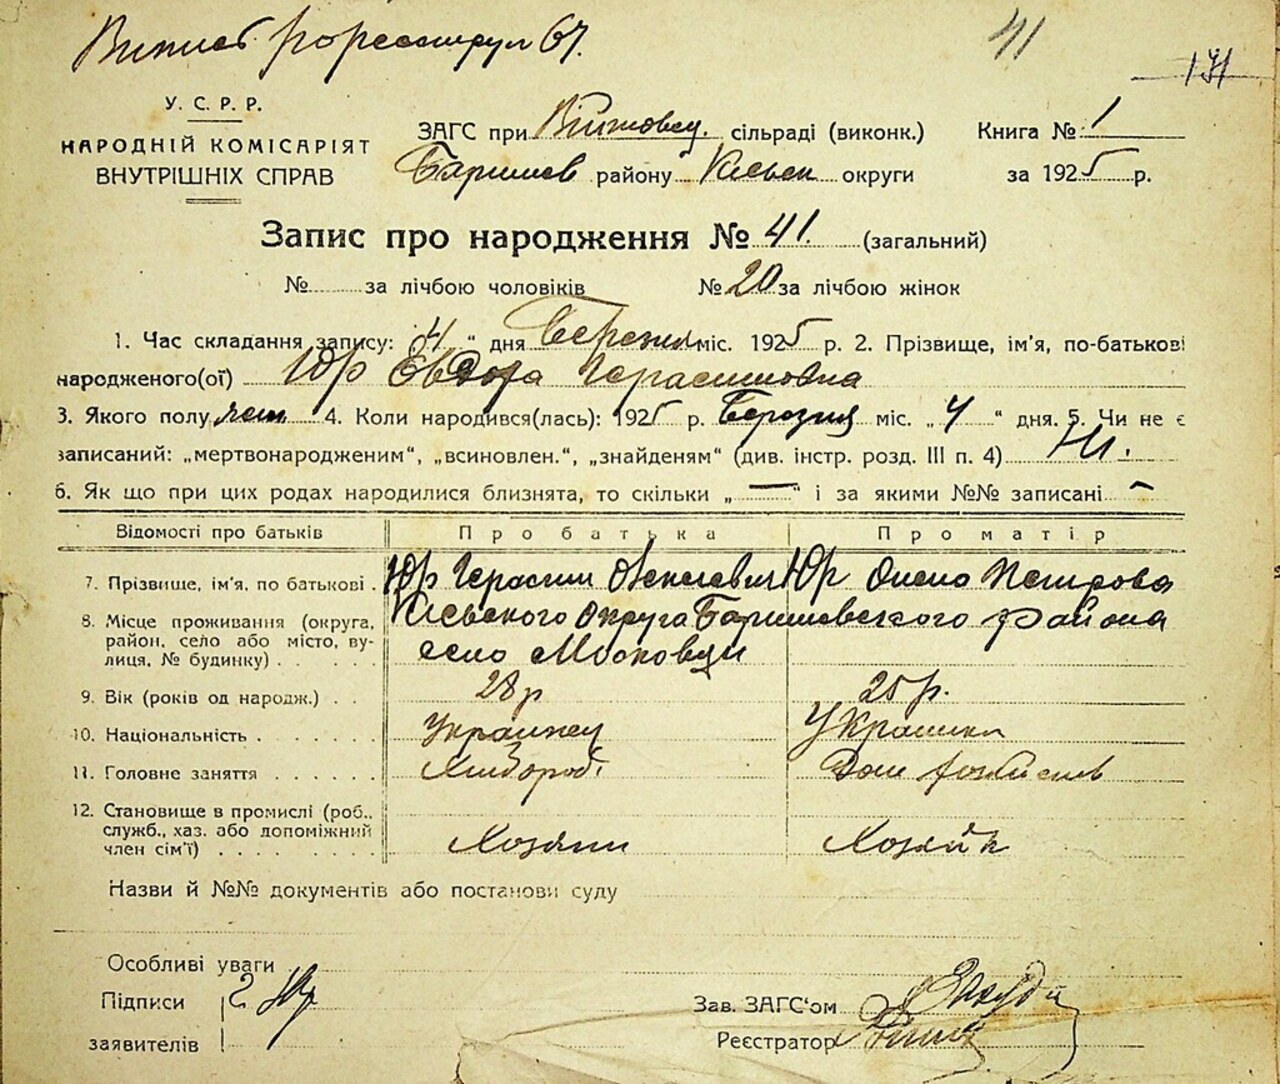 67.
41
171
У. С. Р. Р.
НАРОДНІЙ КОМІСАРІЯТ
ВНУТРІШНІХ СПРАВ
ЗАГС при сільраді (виконк.) Книга № 1
Баришев району Київськ округи за 1925 р.
Запис про народження № 41. (загальний)
№ за лічбою чоловіків № 20 за лічбою жінок
1. Час складання запису: „4“ дня Березня міс. 1925 р. 2. Прізвище, ім'я, по-батькові
народженого(ої) Юр Евдора Герасимовна
3. Якого полу жен 4. Коли народився(лась): 1925 р. Березня міс. „4“ дня. 5. Чи не є
записаний: „мертвонародженим“, „всиновлен.“, „знайденям“ (див. інстр. розд. III п. 4) Ні.
6. Як що при цих родах народилися близнята, то скільки „—“ і за якими №№ записані —
Відомості про батьків Про батька Про матір
7. Прізвище, ім'я, по батькові. Юр Герасим Юр Олена Петрова
8. Місце проживання (округа, район, село або місто, вулиця, № будинку) Київського Округа Баришевського района
село
9. Вік (років од народж.) 28 р 25 р.
10. Національність Украинец Украинка
11. Головне заняття Хлібороб. Дом
12. Становище в промислі (роб., служб., хаз. або допоміжний член сім'ї) Хозяин Хозяйк
Назви й №№ документів або постанови суду
Особливі уваги
Підписи Г Юр
заявителів
Зав. ЗАГС'ом
Реєстратор